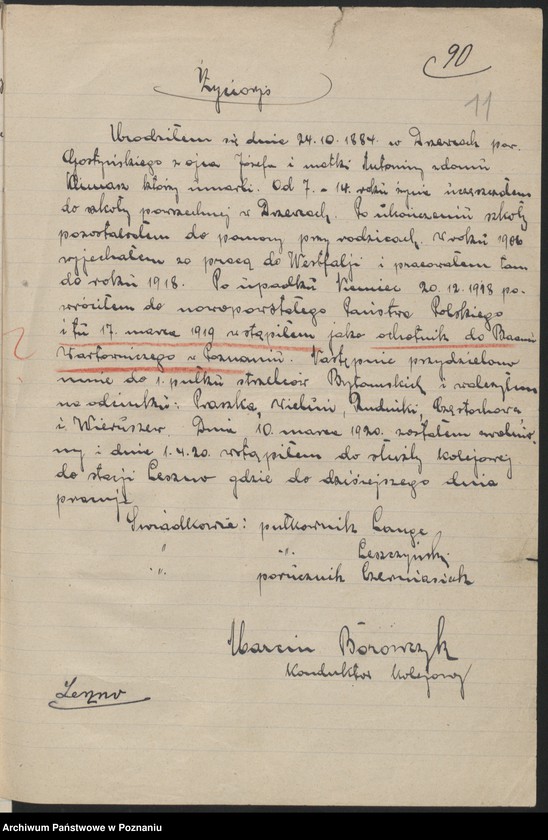 90
11
Życiorys
Urodziłem się dnia 24.10.1884 w Drzewcach pow.
Gostyńskiego z ojca Józefa i matki Antoniny z domu
którzy umarli. Od 7. - 14. roku życia uczęszczałem
do szkoły powszechnej w Drzewcach. Po ukończeniu szkoły
pozostałem do pomocy przy rodzicach. W roku 1906
wyjechałem za pracą do Westfalji i pracowałem tam
do roku 1918. Po upadku Niemiec 20.12.1918 po-
wróciłem do nowopowstałego Państwa Polskiego
i tu 17. marca 1919 wstąpiłem jako ochotnik do Baonu
Wartowniczego w Poznaniu. Następnie przydzielono
mnie do 1. pułku strzelców Bytomskich i walczyłem
na odcinku: Praszka, Wieluń, Rudniki, Częstochowa
i Wieruszew. Dnia 10. marca 1920. zostałem zwolnio-
ny i dnia 1.4.20. wstąpiłem do służby kolejowej
do stacji Leszno gdzie do dzisiejszego dnia
pracuję
Swiadkowie: pułkownik Lange
" " Leszczyński
porucznik Czerniasiak
Marcin Borowczyk
Konduktor kolejowy
Leszno
Archiwum Państwowe w Poznaniu